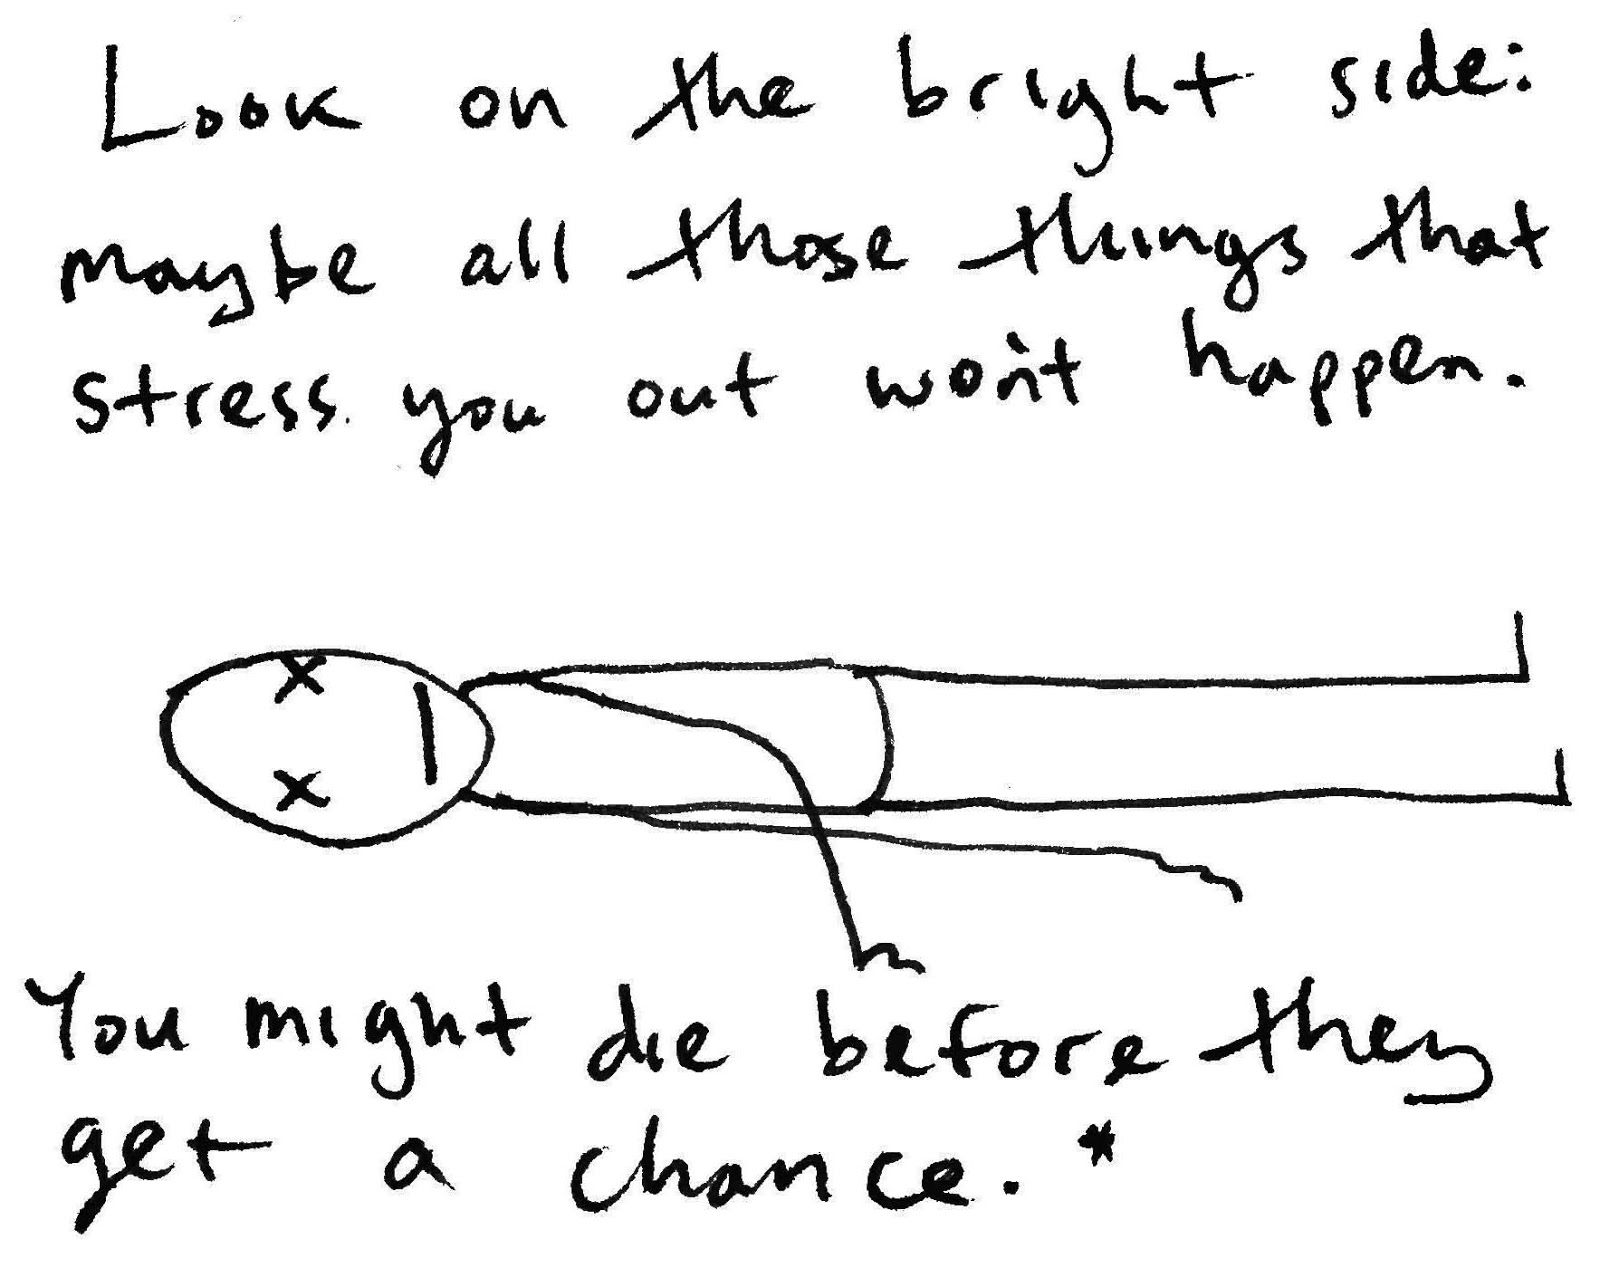 Look on the bright side:
maybe all those things that
stress you out won't happen.
You might die before they
get a chance.*